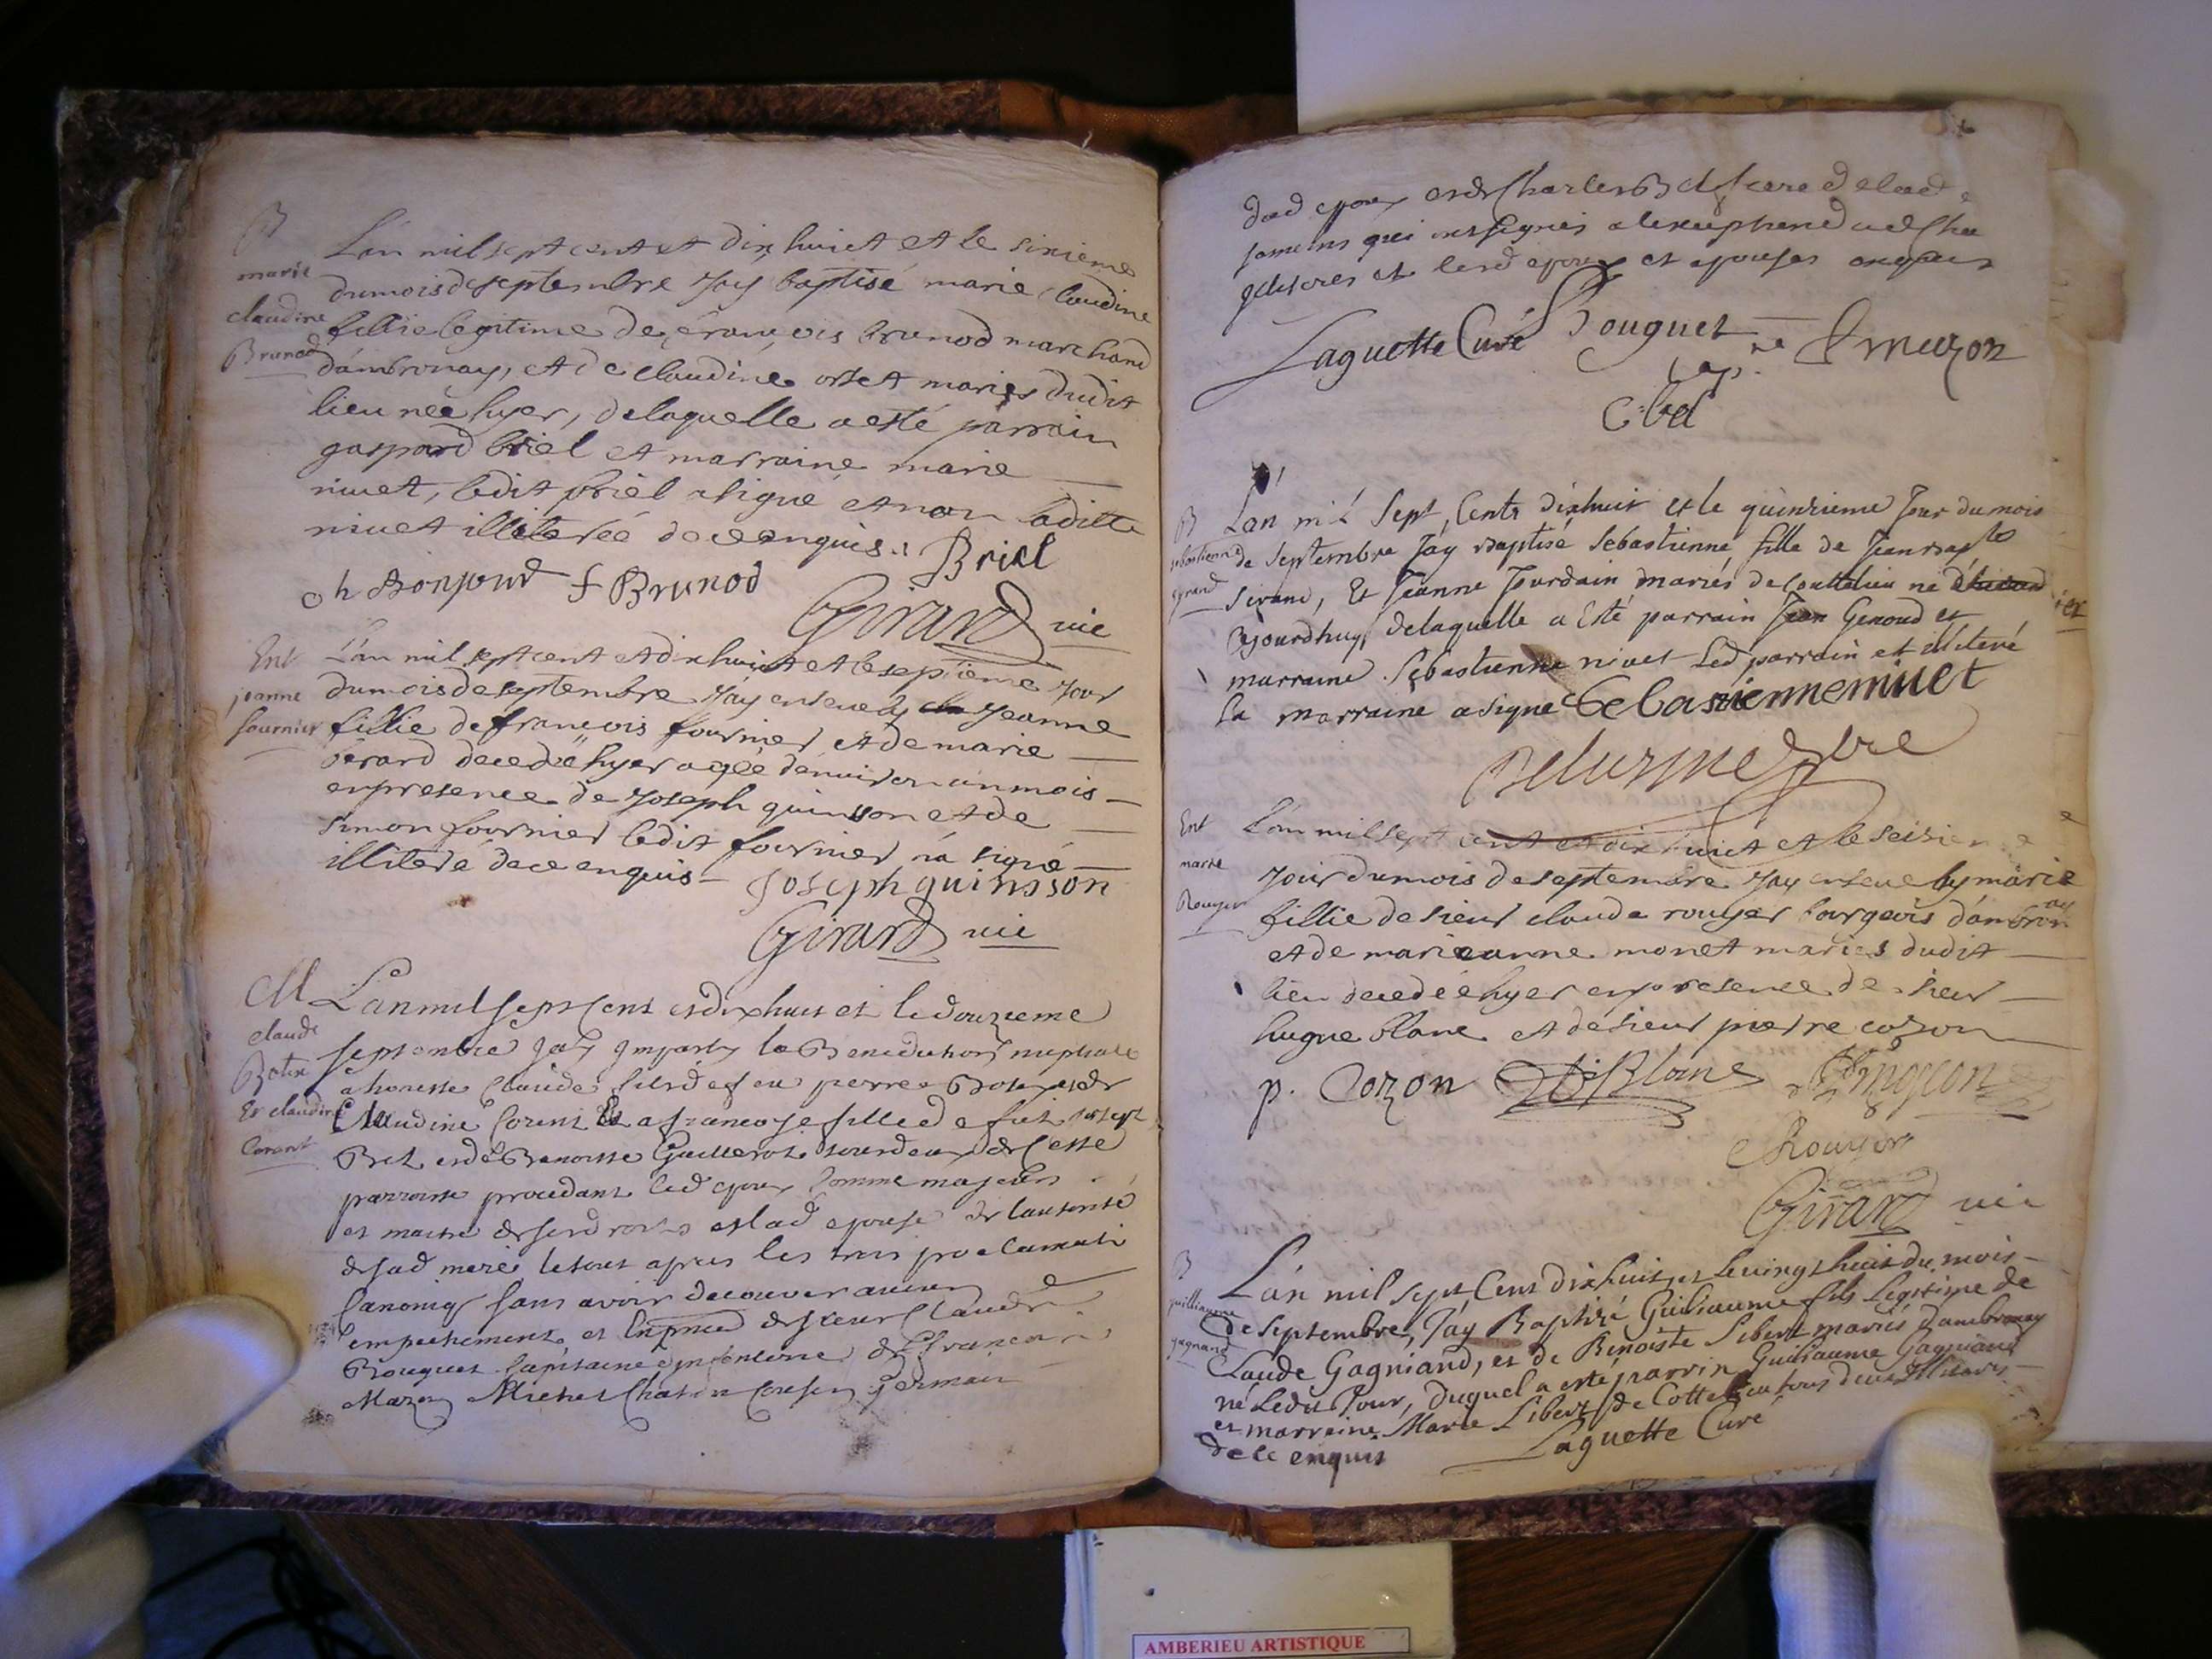 B
marie
claudine
Brunod
L'an mil sept cent et dix huict et le sixieme
du mois de septembre Jay baptisé marie claudine
fillie legitime de françois brunod marchand
d'ambronay, et de claudine ortet mariés dudit
lieu née hyer, de laquelle a esté parrain
gaspard briel et marraine marie
nivet, ledit briel a signé et non laditte
nivet illiterée de ce enquis.
Briel
ch Bonjour f Brunod
Girard vic
Ent
jeanne
fournier
L'an mil sept cent et dix huict et le septieme jour
du mois de septembre Jay ensevely Jeanne
fillie de françois fournier et de marie
berard decedée hyer agée d'environ un mois
en presence de Joseph quinson et de
simon fournier ledit fournier n'a signé
illiteré de ce enquis
Joseph quinsson
Girard vic
M
claude
Et claudine
Corent
L'an mil sept cent et dix huit et le douzieme
septembre Jay imparty la Benediction nuptiale
a honeste Claude fils de feu pierre
Claudine Corent et a francoise fille de feu
parroisse procedant led epoux comme majeur
et maitre de ses droits et lad epouse de lautorité
de sad mere le tout apres les trois proclamati
Canoniq sans avoir decouver aucun
empechement et en pnce de sieur Claude
Bouquet Capitaine d'infanterie de
Mazon Michel Chaton Cousin germain
dud epoux et de Charles Bel frere de lad
temoins qui ont signés a
et lesd epoux et epouses enquis
Laguette Curé Bouquet Cap. ne
C bel
B
sebastienne
L'an mil Sept Cents dixhuit et le quinzieme Jour du mois
de Septembre Jay Baptisé Sebastienne fille de Jean bapte
Sirand, Et Jeanne Jourdain mariés de Couttelieu né
ajourdhuy, delaquelle a Esté parrain Jean Genoud et
marraine Sebastienne nivet Led parrain et illiteré
la marraine a signé Sebastienne nivet
Ent
marie
Rouyer
L'an mil sept cent et dix huict et le seizieme
jour du mois de septembre Jay ensevely marie
fillie de sieur claude rouyer bourgeois d'ambronay
et de marieanne monet mariés dudit
lieu decedée hyer en presence de sieur
hugue blanc et de sieur pierre cozon
p. Cozon H Blanc
C Rouyer
Girard vic
B
guilliaume
gagnand
L'an mil sept Cent dix huit et le vingt huit du mois
de Septembre, Jay Baptizé Guiliaume fils Legitime de
Claude Gagniand, et de Benoiste Libert mariés d'ambronay
né Ledit Jour, duquel a esté parrin Guiliaume Gagniand
et marreine Marie Libert de Cottelieu tous deux Illiterés
de ce enquis Laguette Curé
AMBERIEU ARTISTIQUE